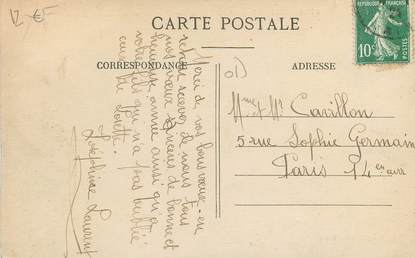 12 €
CARTE POSTALE
CORRESPONDANCE
ADRESSE
REPUBLIQUE FRANÇAISE
10c
POSTES
Merci de vos bons vœux. en
retour recevez de nous tous
nos vœux sincères de bonne et
heureuse année ainsi qu'à
votre fils qui n'a pas oublié
Joséphine Laurent
Mme et Mr Cavillon
5 rue Sophie Germain
Paris 14 e arr